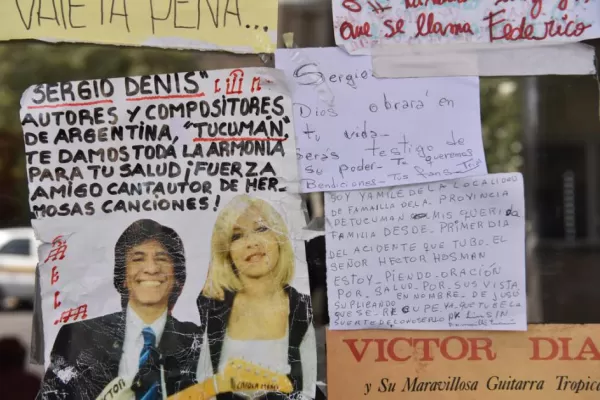 VALETA PENA...
que se llama Federico
SERGIO DENIS"
AUTORES Y COMPOSITORES
DE ARGENTINA, "TUCUMÁN",
TE DAMOS TODA LA ARMONIA
PARA TU SALUD ¡FUERZA
AMIGO CANTAUTOR DE HER-
MOSAS CANCIONES!
Sergio
Dios obrará en
tu vida-
Serás testigo de
su poder- Te queremos
Bendiciones - Tus fans-
SOY YAMILE DE LA LOCALIDAD
DE FAMAILLA DE LA PROVINCIA
DE TUCUMAN MIS QUERIDA
FAMILIA DESDE PRIMER DIA
DEL ACCIDENTE QUE TUBO. EL
SEÑOR HECTOR HOSMAN
ESTOY PIENDO ORACIÓN
POR SALUD. POR SUS VISTA
SUPLICANDO EN NOMBRE DE
QUE SE RECUPE
VICTOR DIA
y Su Maravillosa Guitarra Tropica
VICTOR